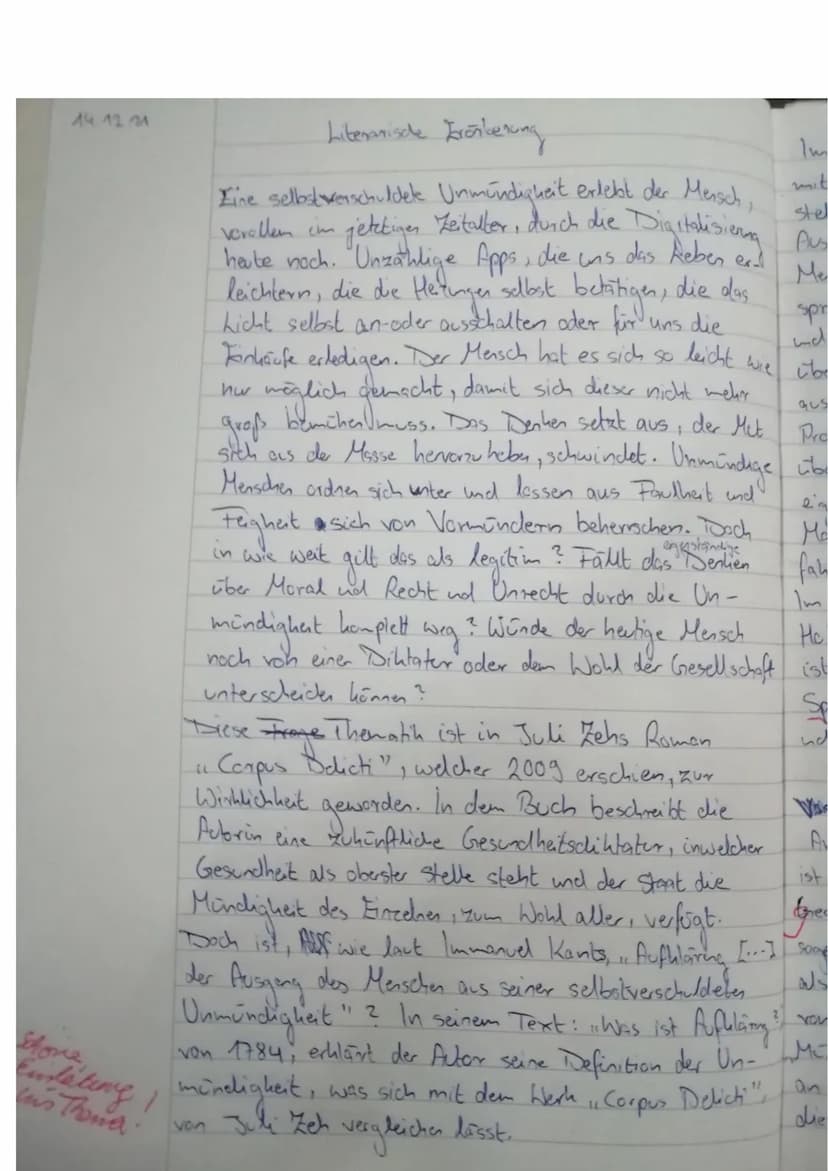 14.12.21
Literarische Erörterung
Eine selbstverschuldete Unmündigkeit erlebt der Mensch,
vorallem im jetztigen Zeitalter, durch die Digitalisierung
heute noch. Unzählige Apps, die uns das Leben er-
leichtern, die die Heizungen selbst betätigen, die das
Licht selbst an-oder ausschalten oder für uns die
Einkäufe erledigen. Der Mensch hat es sich so leicht wie
nur möglich gemacht, damit sich dieser nicht mehr
groß bemühen muss. Das Denken setzt aus, der Mut
sich aus der Masse hervorzuheben, schwindet. Unmündige
Menschen ordnen sich unter und lassen aus Faulheit und
Feigheit sich von Vormündern beherrschen. Doch
in wie weit gilt das als legitim? Fällt das eigenständige Denken
über Moral und Recht und Unrecht durch die Un-
mündigkeit komplett weg? Würde der heutige Mensch
noch von einer Diktatur oder dem Wohl der Gesellschaft
unterscheiden können?
Diese Frage Thematik ist in Juli Zehs Roman
„Corpus Delicti", welcher 2009 erschien, zur
Wirklichkeit geworden. In dem Buch beschreibt die
Autorin eine zukünftliche Gesundheitsdiktatur, inwelcher
Gesundheit als oberster Stelle steht und der Staat die
Mündigkeit des Einzelnen, zum Wohl aller, verfügt.
Doch ist, wie laut Immanuel Kants, „Aufklärung [...]
der Ausgang des Menschen aus seiner selbstverschuldeten
Unmündigkeit"? In seinem Text: „Was ist Aufklärung?"
von 1784, erklärt der Autor seine Definition der Un-
mündigkeit, was sich mit dem Werk „Corpus Delicti",
von Juli Zeh vergleichen lässt.
Schöne
Einleitung
ins Thema!
Im
mit
stel
Aus
Me
spr
und
übe
aus
Pro
üb
ein
Ma
fah
Im
Ha
ist
Sp
und
ist
als
von
an
die